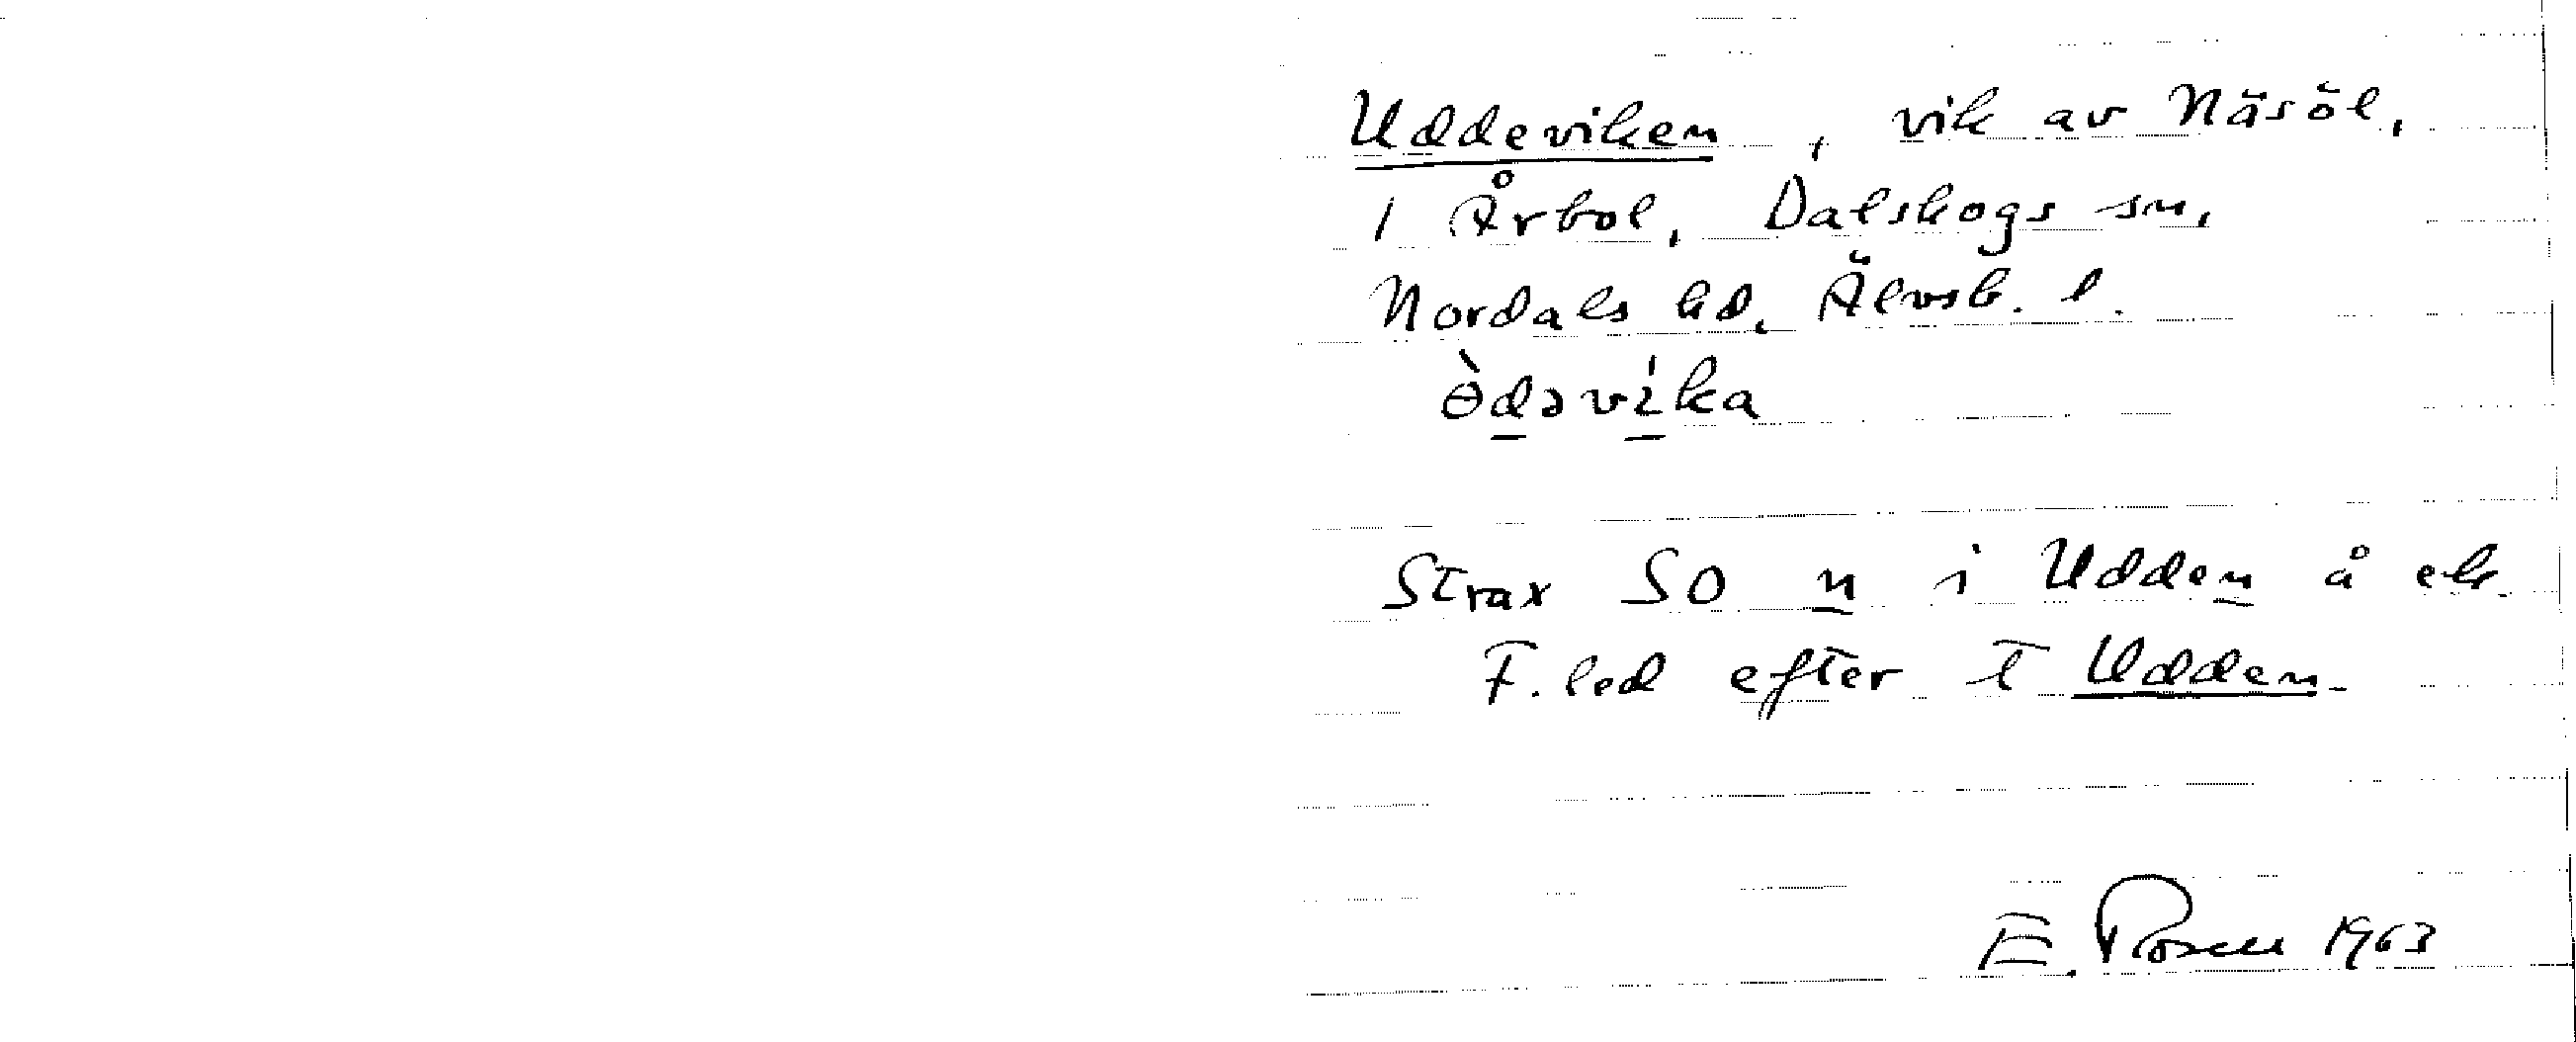 Uddeviken, vik av Näsöl,
i Årbol, Dalskogs sn,
Nordals hd, Älvsb. l.
ɵ̀dəvíka
Strax SO n i Udden å ek.
F.led efter T Udden.
E. Rosell 1963